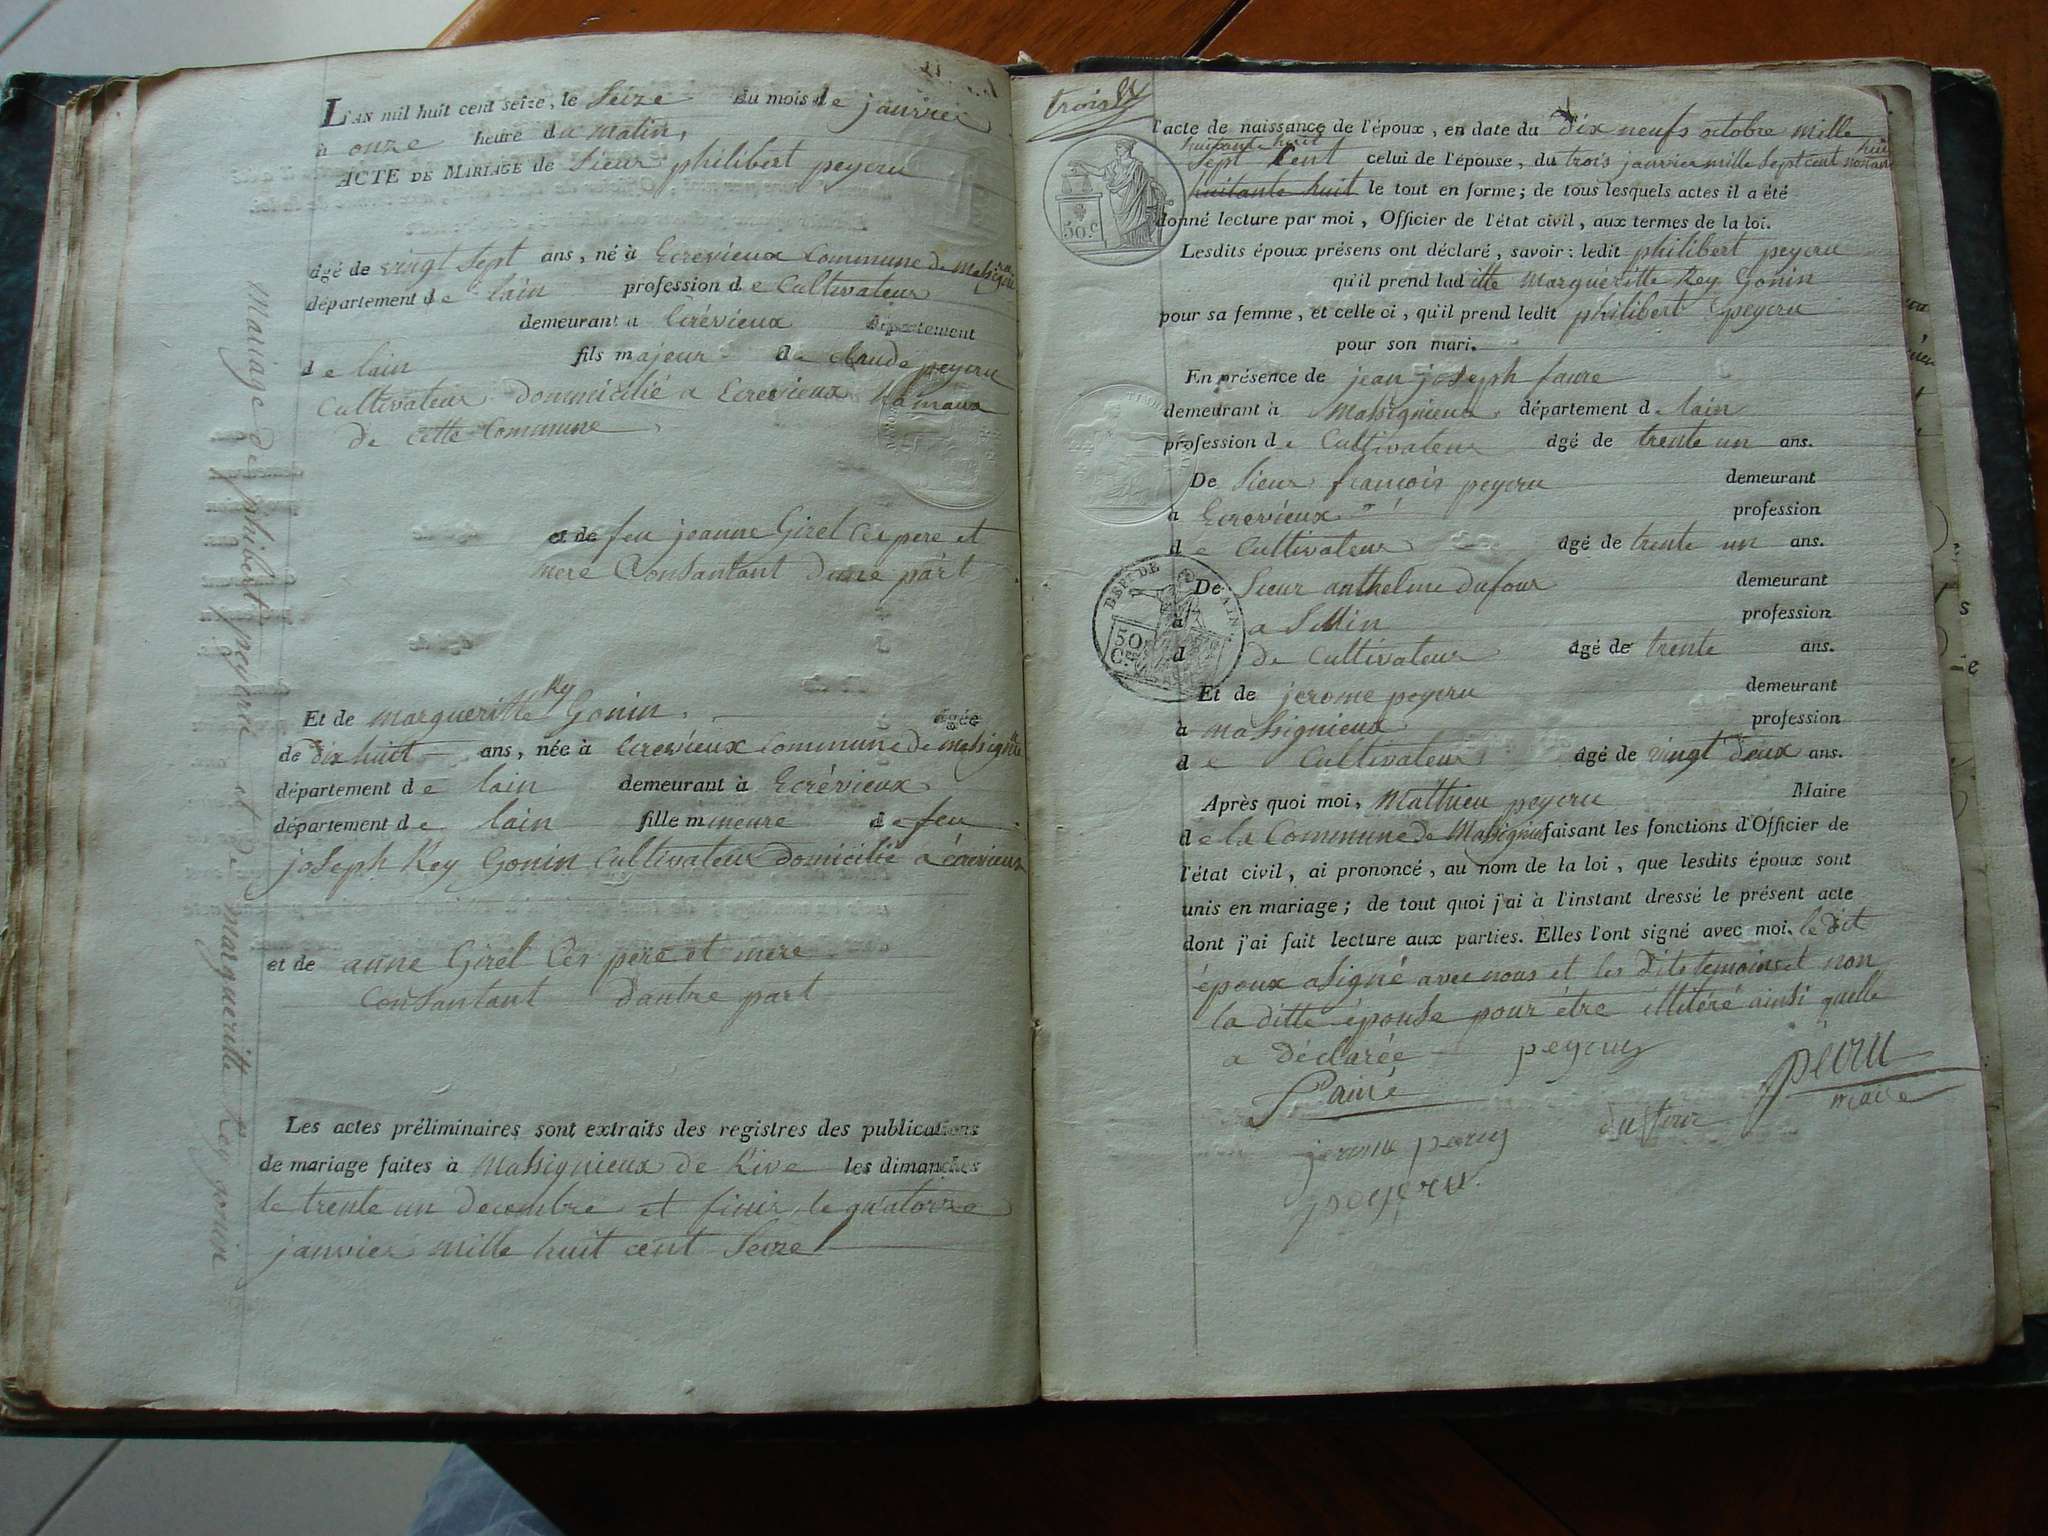 L'AN mil huit cent seize, le Seize du mois de janvier
à onze heure du matin,
ACTE DE MARIAGE de Sieur philibert peycru
âgé de vingt Sept ans, né à Ecrevieux Commune de Massignieu
département de lain profession de Cultivateur
demeurant a Ecrévieux département
de lain fils majeur de claude peycru
Cultivateur domicilié a Ecrevieux hamaux
de cette Commune
et de feu jeanne Girel Ces pere et
mere Consantant d'une part
Rey
Et de margueritte Gonin. âgée
de dix huit ans, née à Ecrevieux Commune de massignieu
département de lain demeurant à Ecrévieux
département de lain fille mineure de feu
joseph Rey Gonin Cultivateur domicilié a écrevieux
et de anne Girel Ces père et mere
Consantant d'autre part
Les actes préliminaires sont extraits des registres des publications
de mariage faites à Massignieux de Rive les dimanches
le trente un decembre et finir le quatorze
janvier mille huit cent Seize
Mariage de philibert peycru et de margueritte Rey gonin
trois
l'acte de naissance de l'époux, en date du dix neufs octobre mille
huitante huit
Sept Cent celui de l'épouse, du trois janvier mille Sept cent nonante huit
huitante huit le tout en forme; de tous lesquels actes il a été
donné lecture par moi, Officier de l'état civil, aux termes de la loi.
Lesdits époux présens ont déclaré, savoir: ledit philibert peycru
qu'il prend laditte Margueritte Rey Gonin
pour sa femme, et celle ci, qu'il prend ledit philibert peycru
pour son mari.
En présence de jean joseph faure
demeurant à Massignieux département de lain
profession de Cultivateur âgé de trente un ans.
De Sieur francois peycru demeurant
à Ecrevieux profession
de Cultivateur âgé de trente un ans.
De Sieur anthelme dufour demeurant
à a profession
d de Cultivateur âgé de trente ans.
Et de jerome peycru demeurant
à massignieux profession
de Cultivateur âgé de vingt deux ans.
Après quoi moi, Mathieu peycru Maire
de la Commune de Massignieu faisant les fonctions d'Officier de
l'état civil, ai prononcé, au nom de la loi, que lesdits époux sont
unis en mariage; de tout quoi j'ai à l'instant dressé le présent acte
dont j'ai fait lecture aux parties. Elles l'ont signé avec moi. le dit
époux a signé avec nous et les dits temoins et non
la ditte épouse pour être illitéré ainsi quelle
a déclarée peycru
maire
jerome
50.c
DEPT DE L'AIN
50
C.